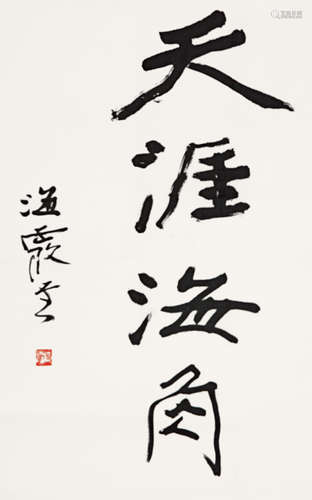 天涯海角
海霞書